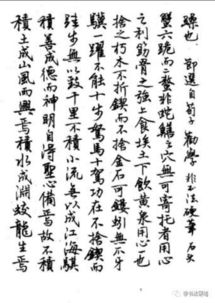 積土成山風雨興焉積水成淵蛟龍生焉
積善成德而神明自得聖心備焉故不積
跬步無以致千里不積小流無以成江海騏
驥一躍不能十步駑馬十駕功在不捨鍥而
捨之朽木不折鍥而不捨金石可鏤蚓無爪牙
之利筋骨之強上食埃土下飲黃泉用心一也
蟹六跪而二螯非蛇鱔之穴無可寄托者用心
躁也 節選自荀子勸學